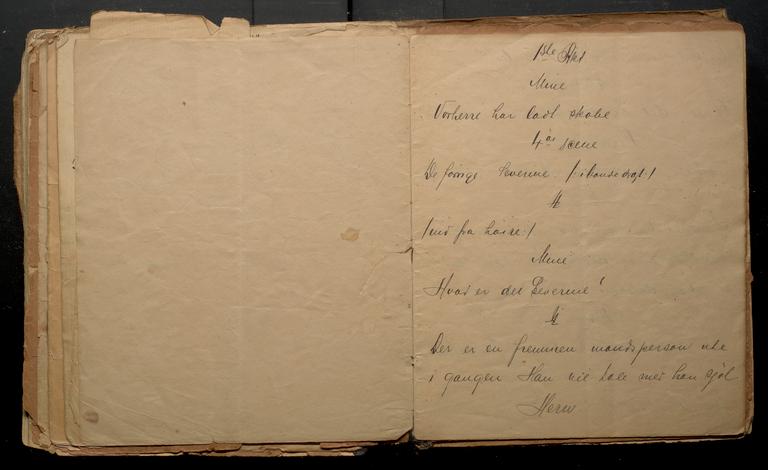 1ste Akt
Mine
Vorherre har ladt skabe
4de scene
De forrige Severine /: i bondedragt :/
S
/ind fra høire:/
Mine
Hvad er det Severine!
S
Der er en fremmen mandsperson ute
i gangen Han vil tale med han sjøl
Herr